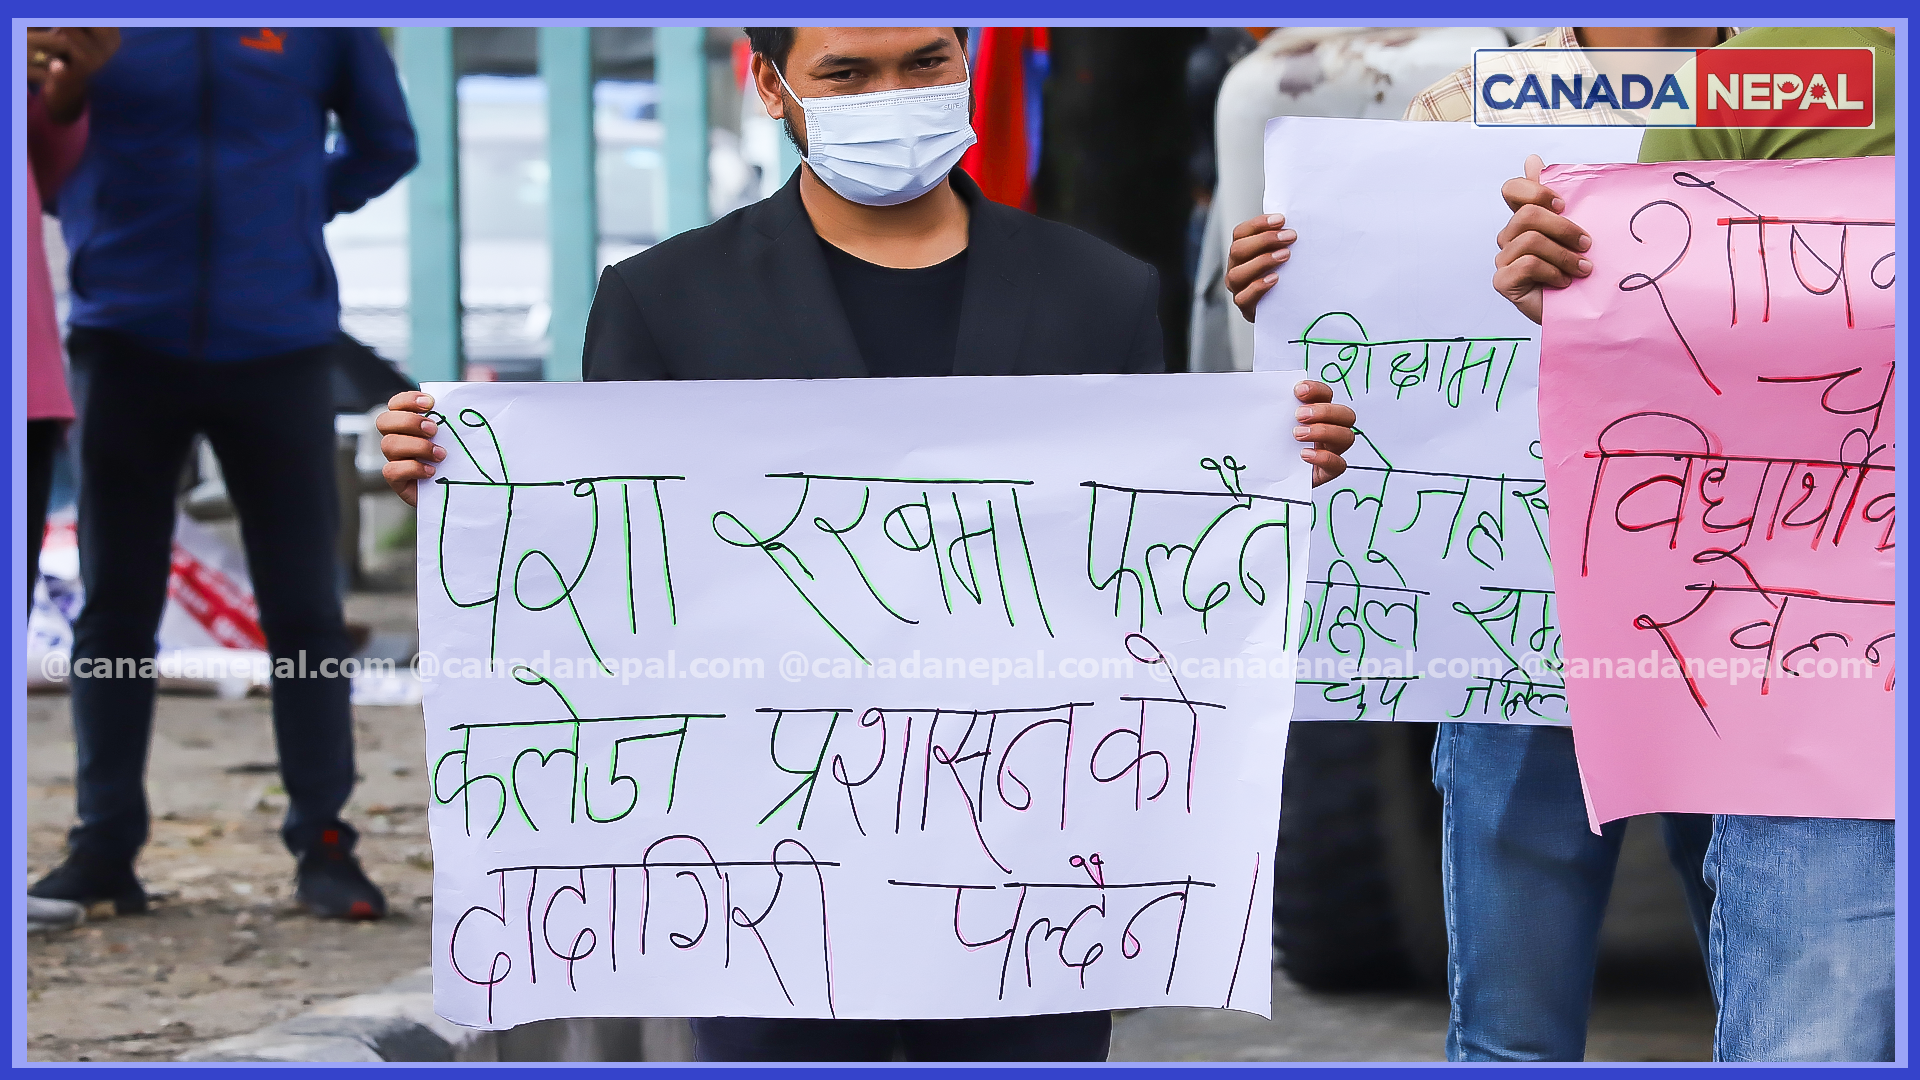 CANADA NEPAL
पैशा रूरबमा फूल्दैन
कलेज प्रशासनको
दादागिरी चल्दैन।
शिक्षामा
चुप
शोष
च
विधार्थी
खेल्न
@canadanepal.com @canadanepal.com @canadanepal.com @canadanepal.com @canadanepal.com